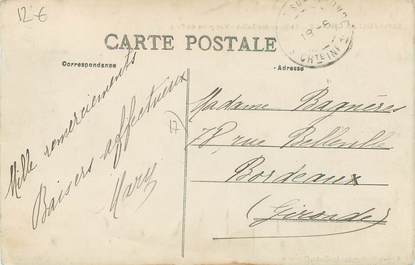 12-€
CARTE POSTALE
Correspondance
Adresse
Mille remerciements
Baisers affectueux
Mary
17
Madame Bagnères
78, rue Belleville
Bordeaux
(Gironde)